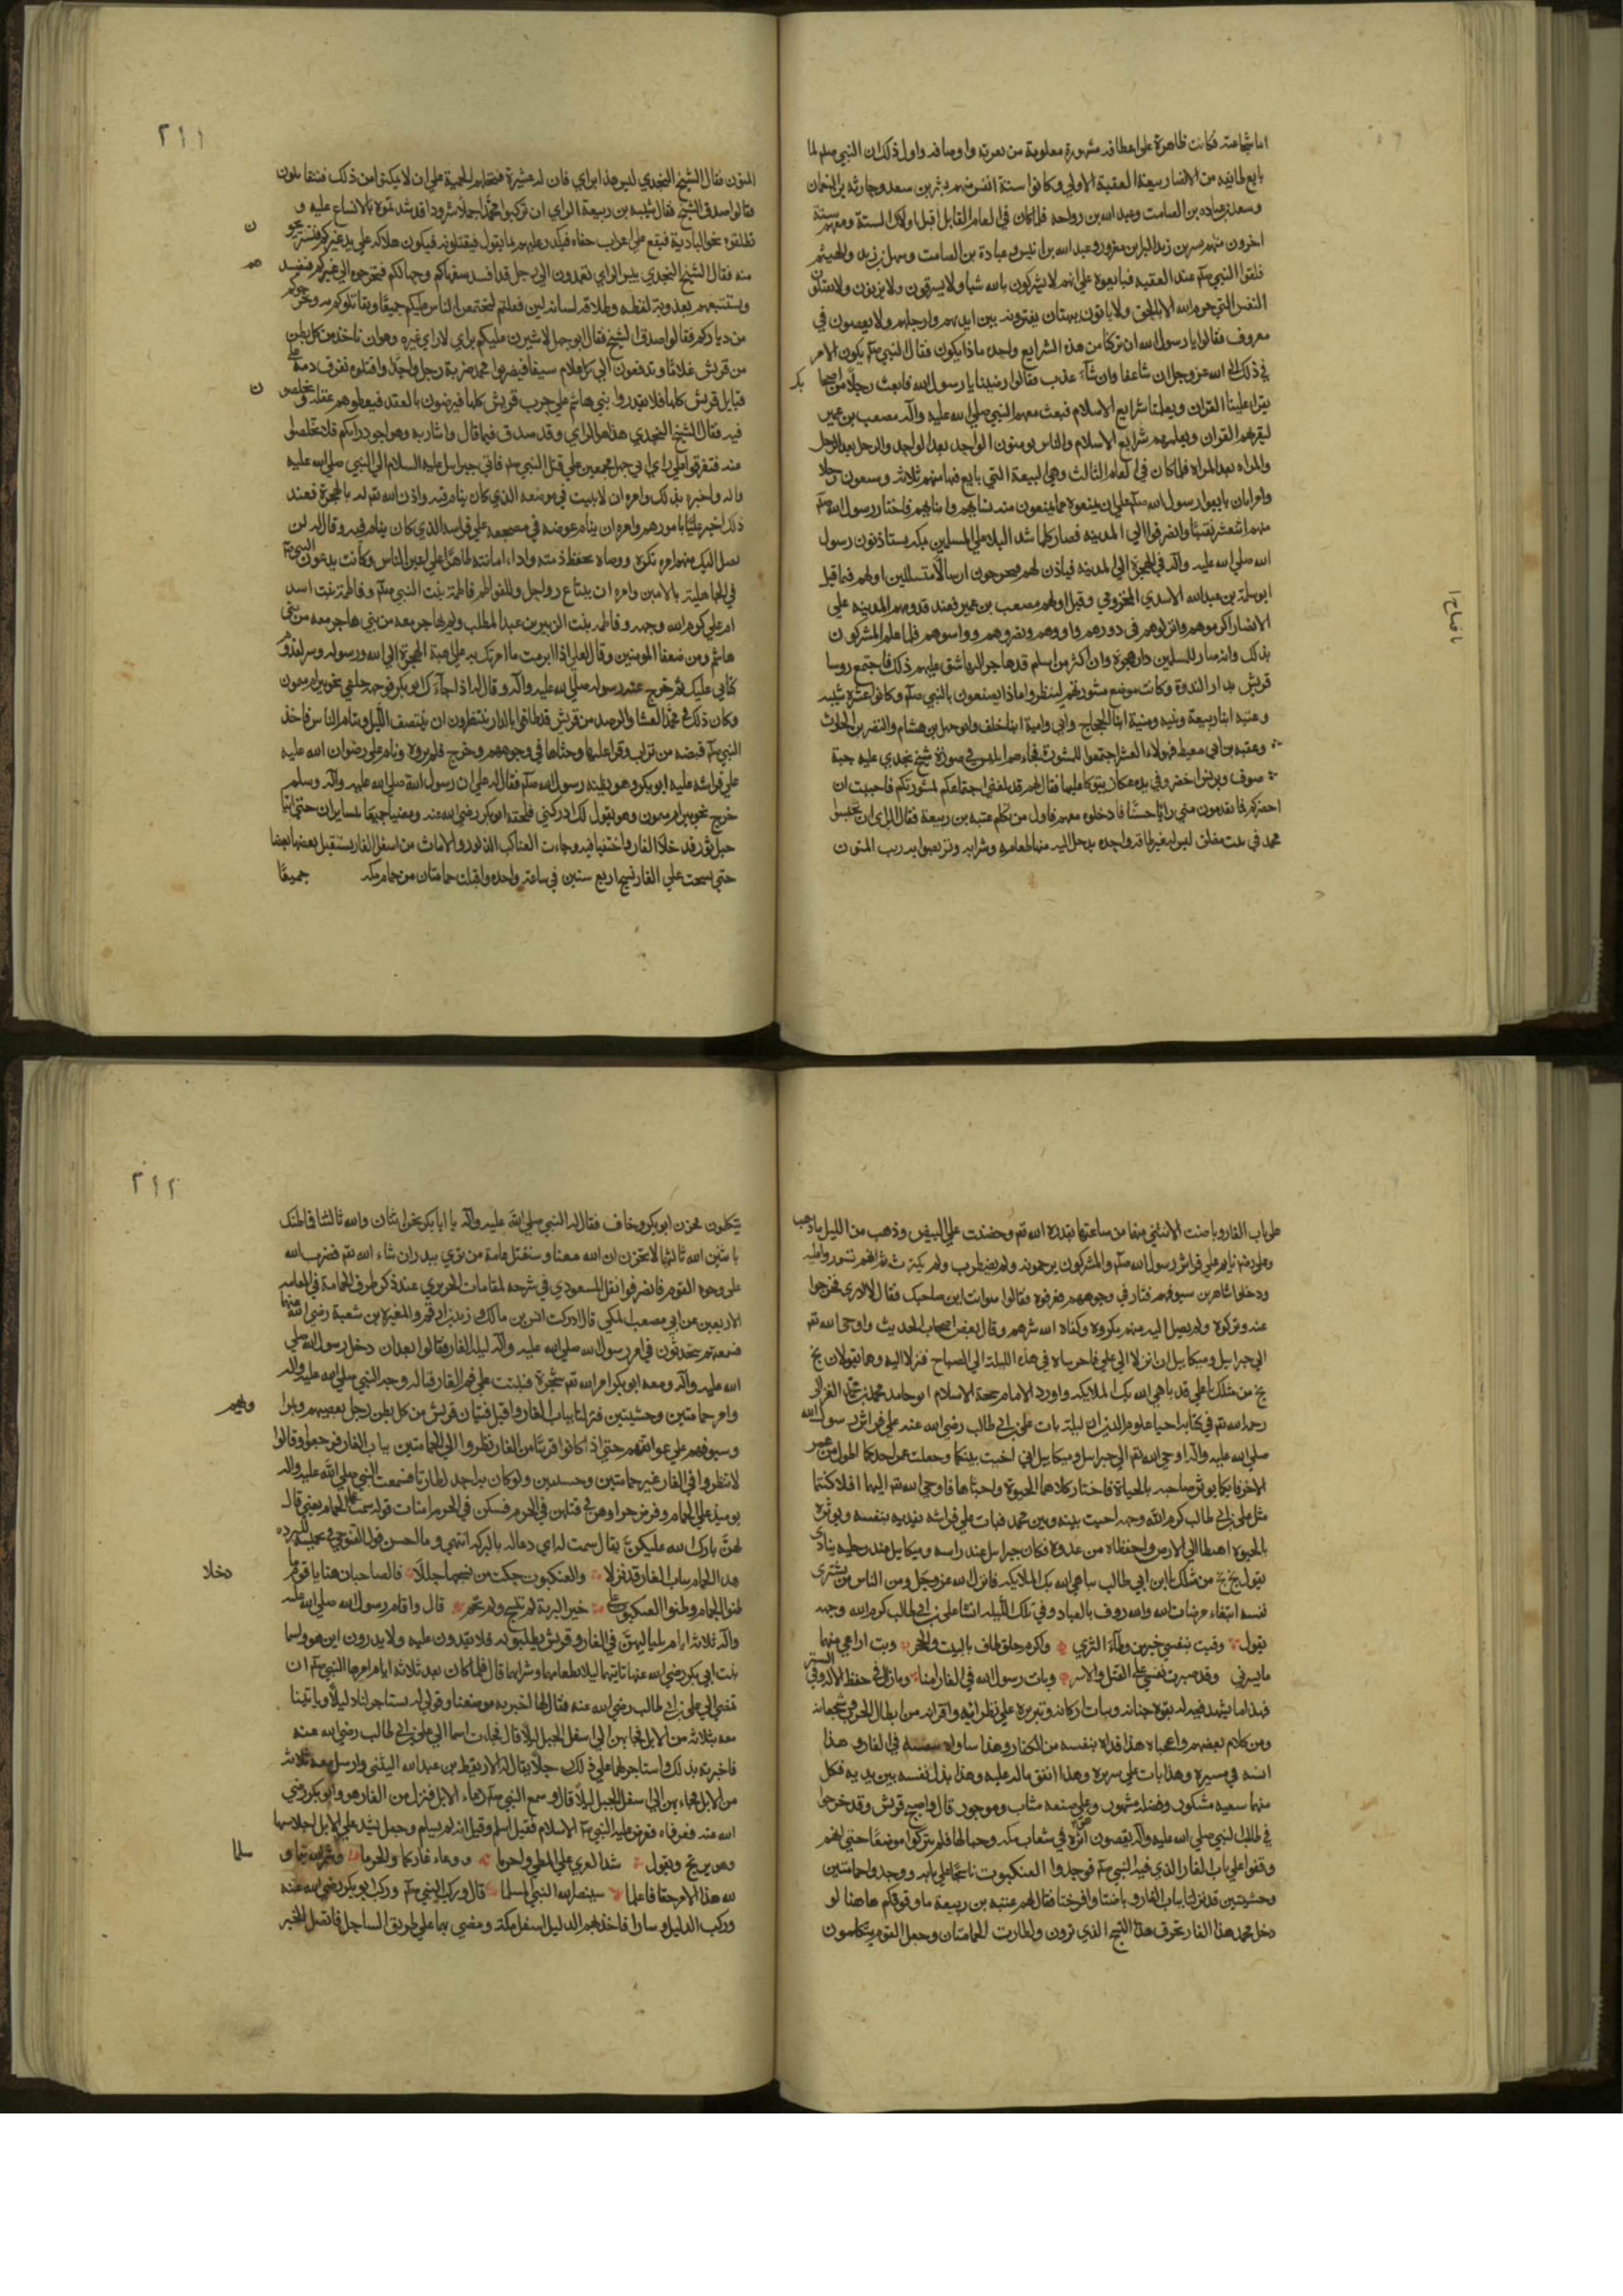 اما شجاعته فكانت ظاهرة على اعطافه مشهورة معلومة من نعوته واوصافه واول ذلك ان النبي صلعم لما
بايع طايفه من الانصار بيعة العقبة الاولي وكانوا ستة انفس منهم بشر بن سعد وحارثه بن النعمان
وسعد بن عباده بن الصامت وعبد الله بن رواحه فلما كان في العام القابل اقبل اولئك الستة ومعهم ستة
اخرون منهم بن زيد البرا بن معرور وعبد الله بن انيس وعبادة بن الصامت وسهل بن زيد والهيثم
فلقوا النبي صلم عند العقبه فبايعوه على انهم لا يشركون بالله شيا ولا يسرقون ولا يزنون ولا يقتلون
النفس التي حرم الله الا بالحق ولا ياتون ببهتان يفترونه بين ايديهم وارجلهم ولا يعصون في
معروف فقالوا يا رسول الله ان تركنا من هذه الشرايع واحده ماذا يكون فقال النبي صلم يكون الامر
في ذلك الى الله عز وجل ان شاء عفا وان شاء عذب فقالوا رضينا يا رسول الله فابعث رجلا من اصحابك
يقرا علينا القران ويعلمنا شرايع الاسلام فبعث معهم النبي صلي الله عليه واله مصعب بن عمير
ليقريهم القران ويعلمهم شرايع الاسلام والناس يومنون الواحد بعد الواحد والرجل بعد الرجل
والمراه بعد المراه فلما كان في العام الثالث وهي البيعة التي بايع فيها منهم ثلاثه وسبعون رجلا
وامراتان بايعوا رسول الله صلم على ان يمنعوه مما يمنعون منه نساهم وابناهم فاختار رسول الله صلم
منهم اثنعشر نقيبا وانصرفوا الي المدينه فصار كلما شد البلا على المسلمين بمكه يستاذنون رسول
الله صلي الله عليه واله في الهجرة الي المدينه فياذن لهم فيخرجون ارسالا متسللين اولهم فيما قيل
ابو سلمة بن عبد الله الاسدي المخزومي وقيل اولهم مصعب بن عمير فعند قدومهم المدينه على
الانصار اكرموهم وانزلوهم في دورهم واووهم ونصروهم وواسوهم فلما علم المشركون
بذلك وانه صار للمسلمين دار هجرة وان اكثر من اسلم قد هاجر اليها شق عليهم ذلك فاجتمع روسا
قريش بدار الندوة وكانت موضع مشورتهم لينظروا ماذا يصنعون بالنبي صلم وكانوا عشره شيبه
وعتبه ابنا ربيعة ونبيه ومنبه ابنا الحجاج وابي وامية ابنا خلف وابو جهل بن هشام والنضر بن الحارث
وعقبه بن ابي معيط فهولاء العشر اجتمعوا للمشورة فجاءهم ابليس في صورة شيخ نجدي عليه جبة
صوف وبرنس اخضر وفي يده عكاز يتوكا عليها فقال لهم قد بلغني اجتماعكم لمشورتكم فاحببت ان
احضركم فما تعدمون مني رايا حسنا فادخلوه معهم فاول من تكلم عتبه بن ربيعة فقال الراي ان تحبسوا
محمد في بيت مغلق ليس له غير طاقه واحده يدخل اليه منها طعامه وشرابه وتربصوا به ريب المنون
٢١١
المنون فقال الشيخ النجدي ليس هذا براي فان له عشيرة فتحملهم الحمية على ان لا يمكنوا من ذلك فتتقاتلون
فقالوا صدق الشيخ فقال شيبه بن ربيعة الراي ان تركبوا محمدا جملا شرودا قد شد تموه بالانساع عليه و
تطلقوه نحو البادية فيقع على اعراب جفاه فيكدر عليهم بما يقول فيقتلونه فيكون هلاكه على يد غيركم فتستريحون
منه فقال الشيخ النجدي بيس الراي تعمدون الي رجل قد افسد سفهاكم وجهالكم فتخرجوه الي غيركم فيفسدهم
ويستتبعهم بعذوبة لفظه وطلاقة لسانه لين فعلتم ليجتمعن الناس عليكم جميعا ويقاتلوكم به ويخرجوكم
من دياركم فقالوا صدق الشيخ فقال ابو جهل لاشيرن عليكم براي لا راي غيره وهو ان تاخذ من كل بطن
من قريش غلاما وتدفعون الي كل غلام سيفا فيضربوا محمد ضربة رجل واحد فاذا قتلوه تفرق دمه على
قبايل قريش كلها فلا يقدروا بني هاشم على حرب قريش كلها فيرضون بالعقد فيعطوهم عقله وتخلصون
فيه فقال الشيخ النجدي هذا هو الراي وقد صدق فيما قال واشار به وهو اجود رايكم فلا تخلصوا
عنه فتفرقوا على راي ابي جهل مجمعين على قتل النبي صلم فاتي جبرايل عليه السلام الي النبي صلي الله عليه
واله واخبره بذلك وامره ان لا يبيت في موضعه الذي كان ينام فيه واذن الله تع له بالهجرة فعند
ذلك اخبر عليا بامورهم وامره ان ينام عوضه في مضجعه على فراشه الذي كان ينام فيه وقال له لن
يصل اليك منهم امر تكرهه ووصاه بحفظ ذمته واداء امانته ظاهرا على اعين الناس وكانت تدعون النبي صلم
في الجاهلية بالامين وامره ان يبتاع رواحل وللفواطم فاطمة بنت النبي صلم وفاطمة بنت اسد
ام علي كرم الله وجهه وفاطمه بنت الزبير بن عبد المطلب ولمن هاجر معه من بني هاجر معه من بني
هاشم ومن ضعفا المومنين وقال لعلي اذا ابرمت ما امرتك به على هبة الهجرة الي الله ورسوله وسر لقدوم
كتابي عليك ثم خرج عنه رسوله صلي الله عليه واله وقال له اذا جاءك ابو بكر فوجهه خلفي نحو بير ام ميمون
وكان ذلك في فحمة العشا والرصد من قريش قد طافوا بالدار ينتظرون ان ينتصف الليل وينام الناس فاخذ
النبي صلم قبضه من تراب وقرا عليها وحثاها في وجوههم وخرج فلم يروه ونام على رضوان الله عليه
على فراشه عليه ابو بكر وهو يظنه رسول الله صلم فقال له علي ان رسول الله صلي الله عليه واله وسلم
خرج نحو بير ام ميمون وهو يقول لك ادركني فلحقه ابو بكر رضي الله عنه ومضيا جميعا يسايران حتي اتيا
جبل ثور فدخلا الغار واختفيا فيه وجاءت العناكب الذكور والاناث من اسفل الغار يستقبل بعضها بعضا
حتي نسجت علي الغار نسج اربع سنين في ساعة واحده واقبلت حمامتان من حمام مكه جميعا
على باب الغار وباضت الانثي منها من ساعتها بقدرة الله تع وحضنت علي البيض وذهب من الليل ما ذهب
وعلي رضه نايم علي فراش رسول الله صلم والمشركون يرجمونه ولم يضطرب ولم يكترث ثم انهم تسوروا عليه
ودخلوا شاهرين سيوفهم فثار في وجوههم فعرفوه فقالوا هو انت اين صاحبك فقال لا ادري فخرجوا
عنه وتركوه ولم يصل اليه منهم مكروه وكفاه الله شرهم وقال بعض اصحاب الحديث واوحي الله تع
الي جبرايل وميكاييل ان انزلا الي علي فاحرساه في هذه الليلة الي الصباح فنزلا اليه وهما يقولان بخ
بخ من مثلك يا علي قد باهي الله بك الملايكه واورد الامام حجة الاسلام ابو حامد محمد بن محمد الغزالي
رحمه الله تع في كتابه احيا علوم الدين ان ليلة بات علي بن ابي طالب رضي الله عنه علي فراش رسول الله
صلي الله عليه واله اوحي الله تع الي جبرايل وميكاييل اني اخيت بينكما وجعلت عمر احدكما اطول من عمر
الاخر فايكما يوثر صاحبه بالحياة فاختار كلاهما الحيوة واحباها فاوحي الله تع اليهما افلا كنتما
مثل علي بن ابي طالب كرم الله وجهه اخيت بينه وبين محمد فبات على فراشه يفديه بنفسه ويوثره
بالحيوة اهبطا الي الارض واحفظاه من عدوه فكان جبرايل عند راسه وميكاييل عند رجليه ينادي
يقول بخ بخ من مثلك يا ابن ابي طالب يباهي الله بك الملايكه فانزل الله عز وجل ومن الناس من يشتري
نفسه ابتغاء مرضات الله والله روف بالعباد وفي تلك الليله انشا علي بن ابي طالب كرم الله وجهه
يقول وقيت بنفسي خير من وطا الثري واكرم خلق طاف بالبيت والحجر وبت اراعي منهما
ما يسرني وقد صبرت نفسي على القتل والاسر وبات رسول الله في الغار امنا وما زال في حفظ الاله وفي الستر
فهذا ما يشهد فيه له بقوة جنانه وثبات اركانه وتبريزه علي نظرائه واقرانه من ابطال الحرب وشجعانه
ومن كلام بعضهم واعجباه هذا فداه بنفسه من الكفار وهذا ساواه بنفسه في الغار وهذا
انسه في مسيره وهذا بات على سريره وهذا انفق ماله عليه وهذا بذل نفسه بين يديه فكل
منهما سعيه مشكور وفضله مشهور وعلى صنعه مثاب وموجور قال واصبح قريش وقد خرجوا
في طلب النبي صلي الله عليه واله يقصون اثره في شعاب مكه وجبالها فلم يتركوا موضعا حتي انهم
وقفوا على باب الغار الذي فيه النبي صلم فوجدوا العنكبوت ناسجا على بابه ووجدوا حمامتين
وحشيتين قد نزلتا بباب الغار وباضتا وافرختا فقال لهم عتبه بن ربيعة ما وقوفكم هاهنا لو
دخل محمد هذا الغار لخرق هذا النسج الذي ترون ولطارت الحمامتان وجعل القوم يتكلمون
٢١٢
يتكلمون فحزن ابو بكر وخاف فقال له النبي صلي الله عليه واله يا ابا بكر نحن اثنان والله ثالثنا فما ظنك
باثنين الله ثالثهما لا تحزن ان الله معنا وسنقتل عامة من تري ببدر ان شاء الله تع فضرب الله
على وجوه القوم فانصرفوا نقل المسعودي في شرحه لمقامات الحريري عند ذكر طرف الحمامة في المقامة
الاربعين عن ابي مصعب المكي قال ادركت انس بن مالك وزيد بن ارقم والمغيرة بن شعبة رضي الله عنهم
فسمعتهم يتحدثون في امر رسول الله صلي الله عليه واله ليلة الغار فقالوا بعد ان دخل رسول الله صلي
الله عليه واله ومعه ابو بكر امر الله تع شجرة فنبتت على فم الغار قبالة وجه النبي صلي الله عليه واله
وامر حمامتين وحشيتين فنزلتا بباب الغار واقبل فتيان قريش من كل بطن رجل بعصيهم
وسيوفهم على عواتقهم حتي اذا كانوا قريبا من الغار نظروا الي الحمامتين بباب الغار فرجعوا وقالوا
لم ننظروا في الغار غير حمامتين وحشيتين ولو كان به احد لطارتا فسمعت النبي صلي الله عليه واله
بارك الله عليكن يقال سمت له اي دعا له بالبركه انتهي وما احسن قول
هذا الحمام بباب الغار قد نزلا والعنكبوت حكت من نسجها حللا فالصاحبان هنا يا قوم ما دخلا
ظنوا الحمام وظنوا العنكبوت على خير البرية لم تنسج ولم تحم قال واقام رسول الله صلي الله عليه
واله ثلاثة ايام بلياليهن في الغار وقريش يطلبونه فلا يقدرون عليه ولا يدرون اين هو واسما
بنت ابي بكر رضي الله عنهما تاتيهما ليلا بطعامهما وشرابهما قال فلما كان بعد ثلاثة ايام امرها النبي صلم ان
تمضي الي علي بن ابي طالب رضي الله عنه فقال لها اخبريه بموضعنا وقولي له يستاجر لنا دليلا وياتينا
معه بثلاثة من الابل فجابهن الي اسفل الجبل ليلا قال فجاءت اسما الي علي بن ابي طالب رضي الله عنه
فاخبرته بذلك فاستاجر لهما علي في ذلك رجلا يقال له الاريقط بن عبد الله الليثي وارسل معه ثلاثة
من الابل فجاء بهن الي اسفل الجبل ليلا قال وسمع النبي صلم رغاء الابل فنزل من الغار هو وابو بكر رضي
الله عنه فعرفاه فعرض عليه النبي صلم الاسلام فقيل اسلم وقيل انه لم يسلم وجعل يشد على الابل احلاسها
وهو يرتجز ويقول شد العري على المطي واحزما وودعا غاركما والحرما وشمرا هديتما وسلما
لله هذا الامر حقا فاعلما سينصر الله النبي المسلما قال وركب النبي صلم وركب ابو بكر رضي الله عنه
وركب الدليل وسارا فاخذ بهم الدليل اسفل مكة ومضي بهما على طريق الساحل فاتصل الخبر